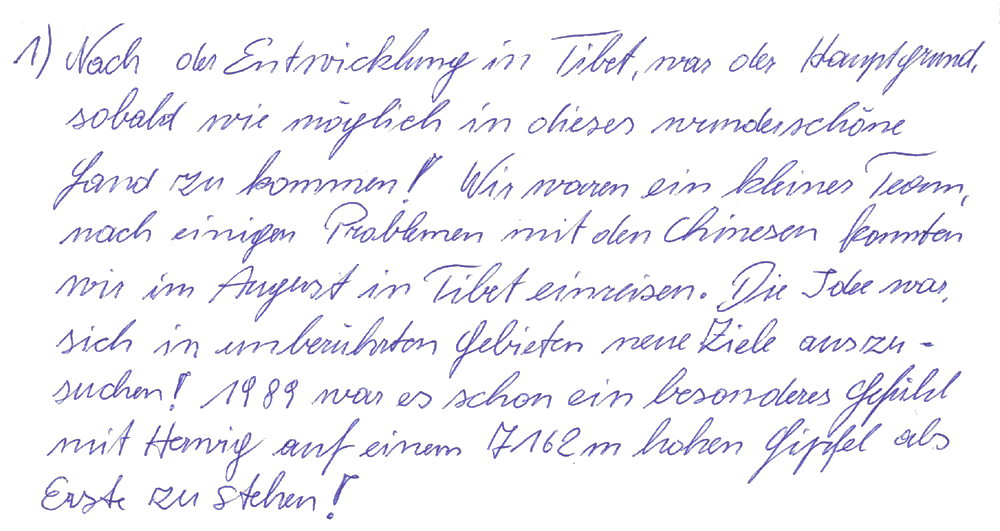 1) Nach der Entwicklung in Tibet, war der Hauptgrund,
sobald wie möglich in dieses wunderschöne
Land zu kommen! Wir waren ein kleines Team,
nach einigen Problemen mit den Chinesen konnten
wir im August in Tibet einreisen. Die Idee war,
sich in unberührten Gebieten neue Ziele auszu-
suchen! 1989 war es schon ein besonderes Gefühl
mit Herwig auf einem 7162m hohen Gipfel als
Erste zu stehen!